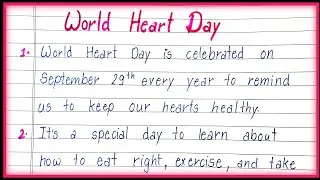 World Heart Day
1. World Heart Day is celebrated on
September 29th every year to remind
us to keep our hearts healthy.
2. It's a special day to learn about
how to eat right, exercise, and take